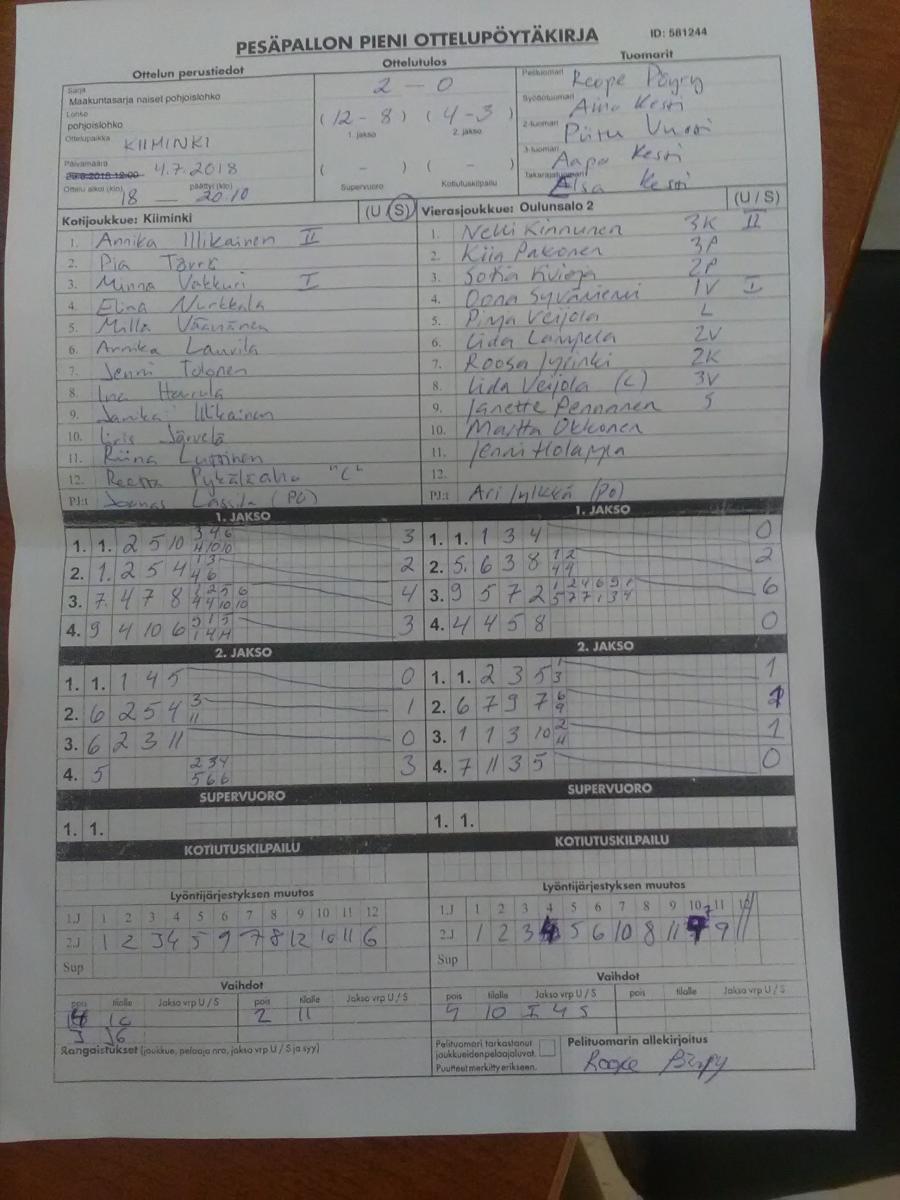 PESÄPALLON PIENI OTTELUPÖYTÄKIRJA ID: 581244
Ottelun perustiedot Ottelutulos Tuomarit
Sarja
Maakuntasarja naiset pohjoislohko
Lohko
pohjoislohko
Ottelupaikka KIIMINKI
Päivämäärä 4.7.2018
Ottelu alkoi (klo) 18 — päättyi (klo) 20.10
2 – 0
(12 – 8) (4 – 3)
1. jakso 2. jakso
( - ) ( - )
Supervuoro Kotiutuskilpailu
Pelituomari Roope Pöyry
Syöttötuomari Aino Kesti
2-tuomari
3-tuomari Aapo Kesti
Takarajatuomari Elsa Kesti
Kotijoukkue: Kiiminki (U / S)
1. Annika Illikainen II
2. Pia
3. Minna Vakkuri I
4. Elina Nurkkala
5. Milla Väänänen
6. Annika Laurila
7. Jenni Tolonen
8. Ina
9. Janika Illikainen
10. Iiris Järvelä
11. Riina
12. Reetta Pykäläaho "C"
PJ:t Joonas Lassila (PJ)
Vierasjoukkue: Oulunsalo 2 (U / S)
1. Nelli Kinnunen 3K II
2. Kiia Pakonen 3P
3. Sofia 2P
4. Oona Syväniemi 1V I
5. Pinja Veijola L
6. Iida Lampela 2V
7. Roosa Jylinki 2K
8. Iida Veijola (C) 3V
9. Janette Pennanen S
10. Martta Okkonen
11. Jenni Holappa
12.
PJ:t Ari Jylkkä (PJ)
1. JAKSO
1. 1. 2 5 10 3 4 6 3
4 10 10
2. 1. 2 5 4 1 3 2
4 6
3. 7 4 7 8 1 2 5 6 4
4 4 10 10
4. 9 4 10 6 3
1. JAKSO
1. 1. 1 3 4 0
2. 5. 6 3 8 1 2 2
4 4
3. 9 5 7 2 1 2 4 6 9 1 6
5 7 7 1 3 4
4. 4 4 5 8 0
2. JAKSO
1. 1. 1 4 5 0
2. 6 2 5 4 3 1
11
3. 6 2 3 11 0
4. 5 2 3 4 3
5 6 6
2. JAKSO
1. 1. 2 3 5 1 1
3
2. 6 7 9 7 6 1
9
3. 1 1 3 10 2 1
11
4. 7 11 3 5 0
SUPERVUORO
1. 1.
SUPERVUORO
1. 1.
KOTIUTUSKILPAILU
KOTIUTUSKILPAILU
Lyöntijärjestyksen muutos
1.J 1 2 3 4 5 6 7 8 9 10 11 12
2.J 1 2 3 4 5 9 7 8 12 10 11 6
Sup
Lyöntijärjestyksen muutos
1.J 1 2 3 4 5 6 7 8 9 10 11 12
2.J 1 2 3 4 5 6 10 8 11 7 9
Sup
Vaihdot
pois tilalle Jakso vrp U / S pois tilalle Jakso vrp U / S
2 11
Vaihdot
pois tilalle Jakso vrp U / S pois tilalle Jakso vrp U / S
9 10 I 4 S
Rangaistukset (joukkue, pelaaja nro, jakso vrp U / S ja syy)
Pelituomari tarkastanut
joukkueiden pelaajaluvat.
Puutteet merkitty erikseen.
Pelituomarin allekirjoitus
Roope Pöyry